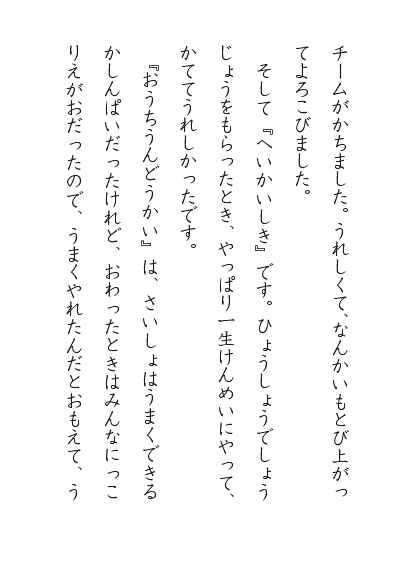 チームがかちました。うれしくて、なんかいもとび上がっ
てよろこびました。
　そして『へいかいしき』です。ひょうしょうでしょう
じょうをもらったとき、やっぱり一生けんめいにやって、
かててうれしかったです。
　『おうちうんどうかい』は、さいしょはうまくできる
かしんぱいだったけれど、おわったときはみんなにっこ
りえがおだったので、うまくやれたんだとおもえて、う